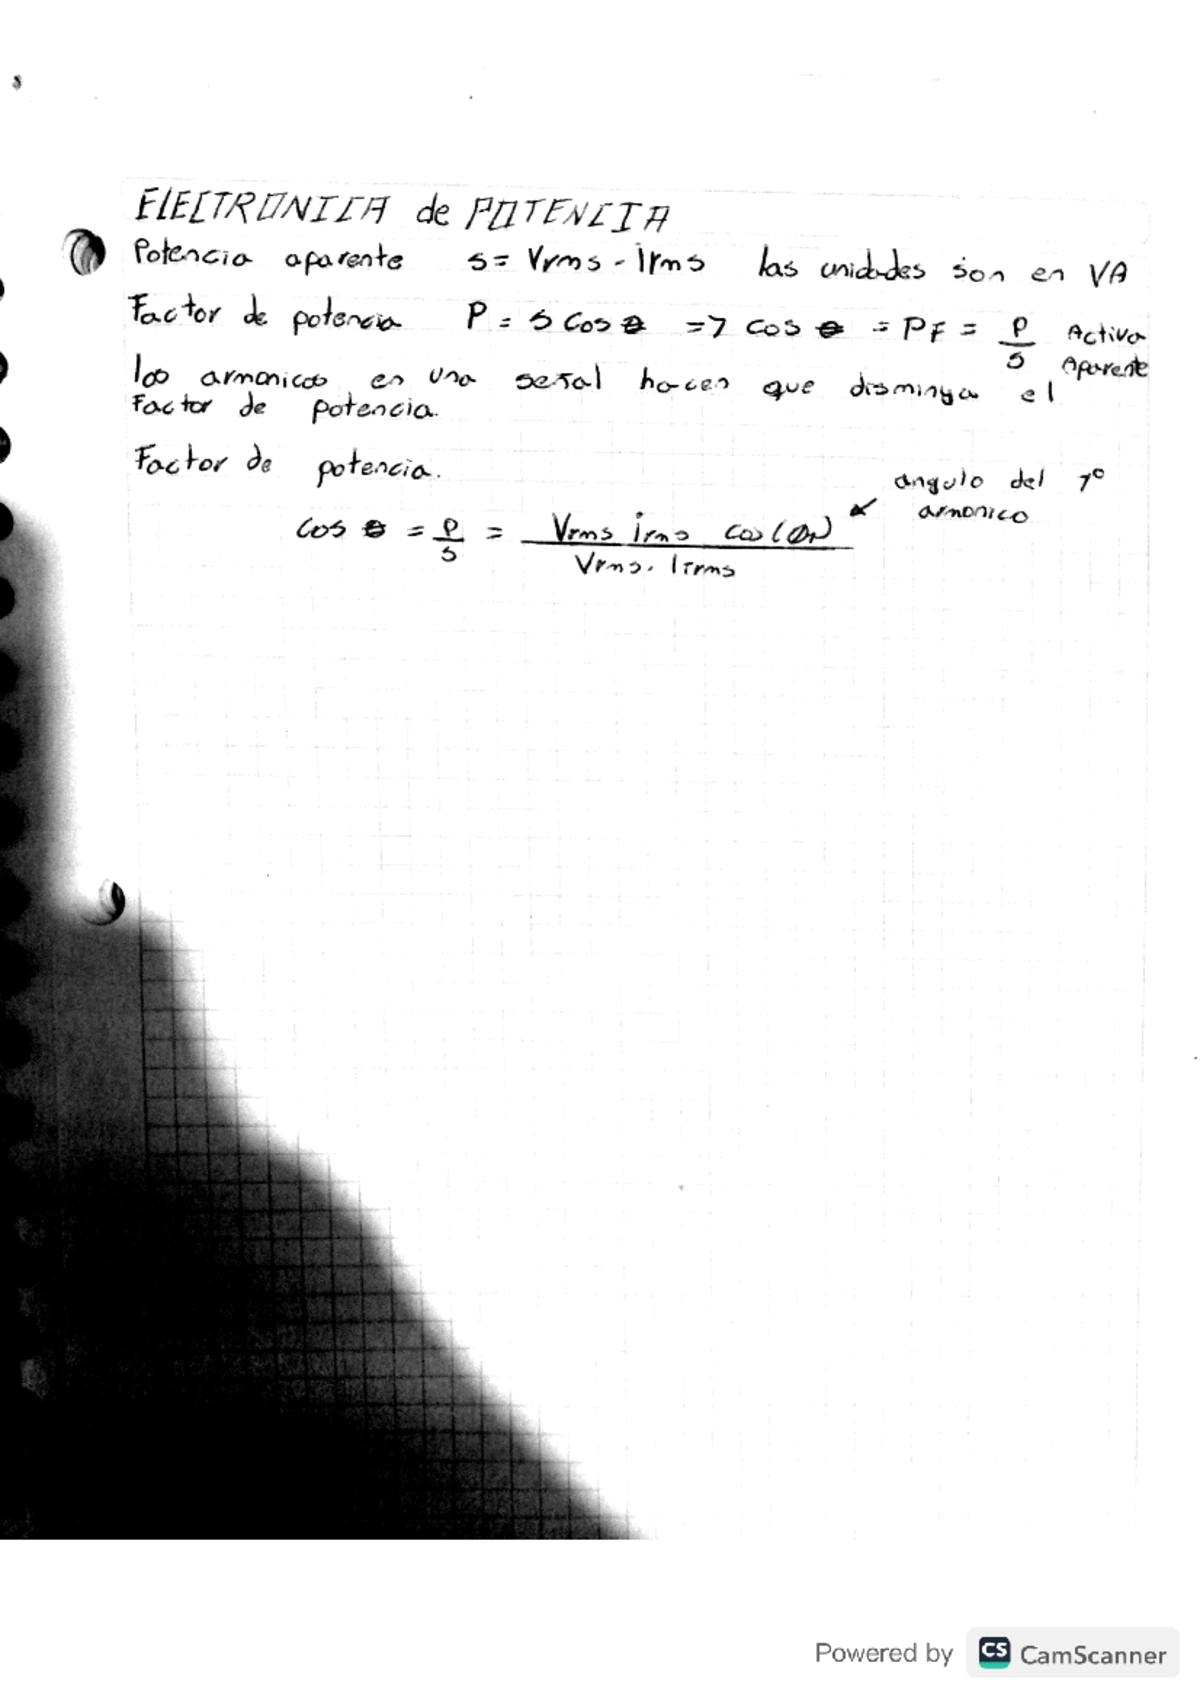 ELECTRONICA de POTENCIA
Potencia aparente S = Vrms - Irms las unidades son en VA
Factor de potencia P = S Cos θ => cos θ = PF = P/S Activa Aparente
los armonicos en una señal hacen que disminya el
Factor de potencia.
Factor de potencia.
angulo del 1º
armonico
cos θ = P/S = Vrms irms cos(θ1) / Vrms. ITrms
Powered by CS CamScanner